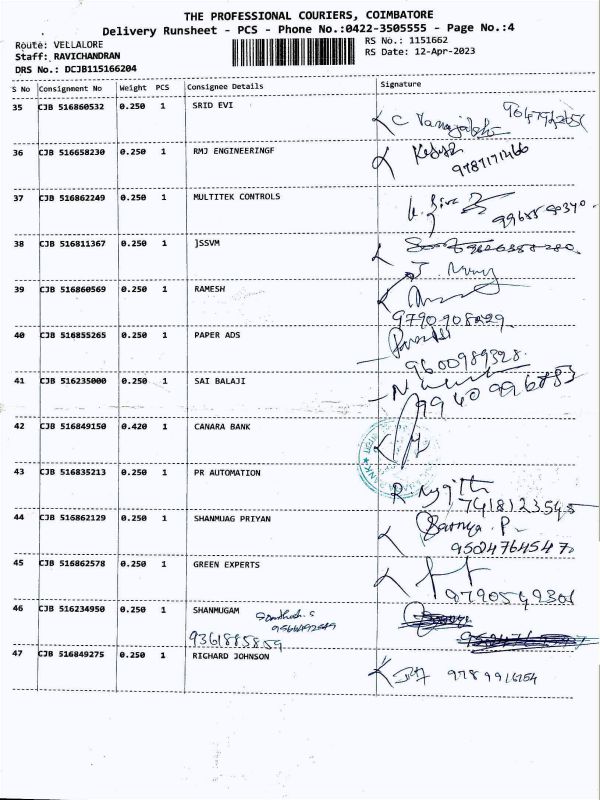 THE PROFESSIONAL COURIERS, COIMBATORE
Delivery Runsheet - PCS - Phone No.:0422-3505555 - Page No.:4
Route: VELLALORE
RS No.: 1151662
Staff: RAVICHANDRAN
RS Date: 12-Apr-2023
DRS No.: DCJB115166204
S No Consignment No Weight PCS Consignee Details Signature
35 CJB 516860532 0.250 1 SRID EVI
36 CJB 516658230 0.250 1 RMJ ENGINEERINGF
9787171466
37 CJB 516862249 0.250 1 MULTITEK CONTROLS
38 CJB 516811367 0.250 1 JSSVM
39 CJB 516860569 1 RAMESH
9790908229
40 CJB 516855265 0.250 1 PAPER ADS
9600989328
41 CJB 516235000 0.250 1 SAI BALAJI
9940996783
42 CJB 516849150 0.420 1 CANARA BANK
43 CJB 516835213 0.250 1 PR AUTOMATION
7418123545
44 CJB 516862129 0.250 1 SHANMUAG PRIYAN
Sarnya. P
9502476454 7
45 CJB 516862578 0.250 1 GREEN EXPERTS
8790549301
46 CJB 516234950 0.250 1 SHANMUGAM
9361885859
47 CJB 516849275 0.250 1 RICHARD JOHNSON